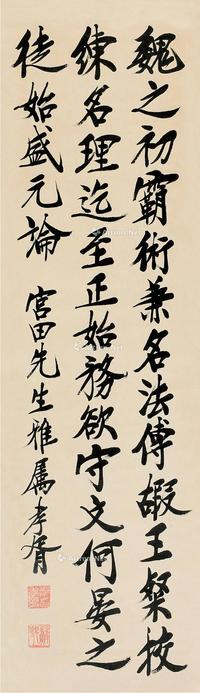 魏之初霸術兼名法傅嘏王粲校
練名理迄至正始務欲守文何晏之
徒始盛元論
宮田先生雅屬孝胥